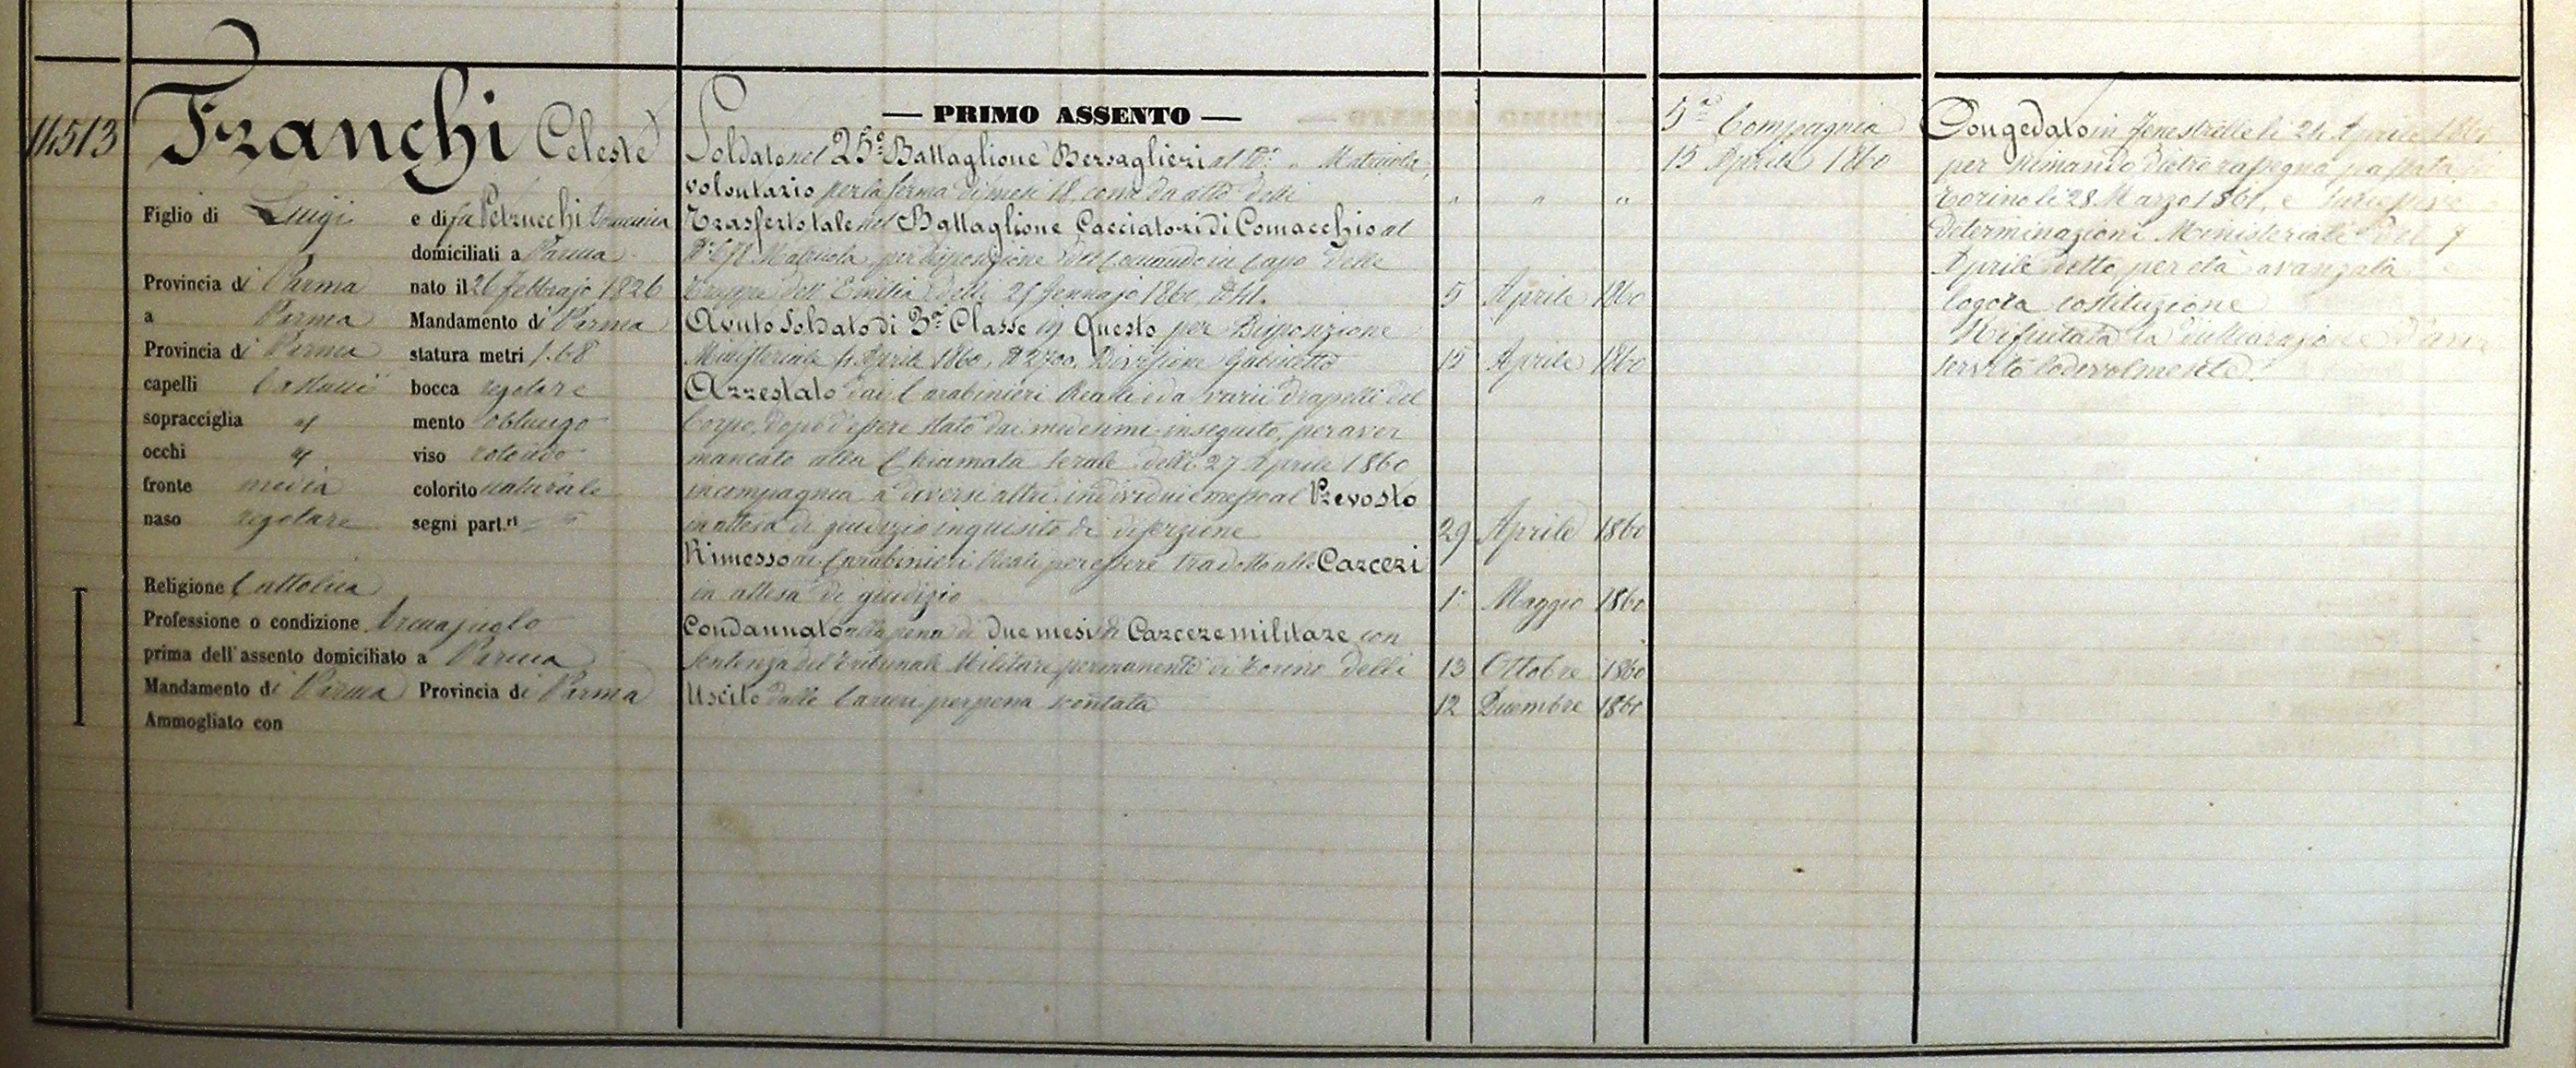 14513
Franchi Celeste
Figlio di Luigi e di fu Petrucchi Domenica
domiciliati a Parma
Provincia di Parma nato il 26 febbrajo 1826
a Parma Mandamento di Parma
Provincia di Parma statura metri 1.68
capelli Castani bocca regolare
sopracciglia " mento oblungo
occhi " viso rotondo
fronte media colorito naturale
naso regolare segni part.ri
Religione Cattolica
Professione o condizione
prima dell'assento domiciliato a Parma
Mandamento di Parma Provincia di Parma
Ammogliato con
— PRIMO ASSENTO —
Soldato nel 25° Battaglione Bersaglieri al N° " Matricola,
volontario per la ferma di mesi 18, come da atto delli " " "
Trasferto tale nel Battaglione Cacciatori di Comacchio al
Matricola per disposizione del Comando in Capo delle
truppe dell'Emilia delli 25 Gennajo 1860 5 Aprile 1860
Avuto Soldato di 3a Classe in Questo per Disposizione
Ministeriale 4 Aprile 1860, N 2700, Divisione Gabinetto 15 Aprile 1860
Arrestato dai Carabinieri Reali e da varii drapelli del
Corpo, dopo d'essere stato dai medesimi inseguito, per aver
mancato alla Chiamata serale delli 27 Aprile 1860
in compagnia a diversi altri individui e messo al Prevosto
in attesa di giudizio inquisito di diserzione 29 Aprile 1860
Rimesso ai Carabinieri Reali per essere tradotto alle Carceri
in attesa di giudizio 1° Maggio 1860
Condannato alla pena di due mesi di Carcere militare con
Sentenza del Tribunale Militare permanente di Torino delli 13 Ottobre 1860
Uscito dalle Carceri per pena scontata 12 Dicembre 1860
5a Compagnia
15 Aprile 1860
Congedato in Fenestrelle li 24 Aprile 1861
per Rimando dietro rassegna passata
Torino li 28 Marzo 1861, e
determinazioni Ministeriali del 7
Aprile detto per età avanzata e
logora costituzione
Rifiutata la dichiarazione d'aver
servito lodevolmente.